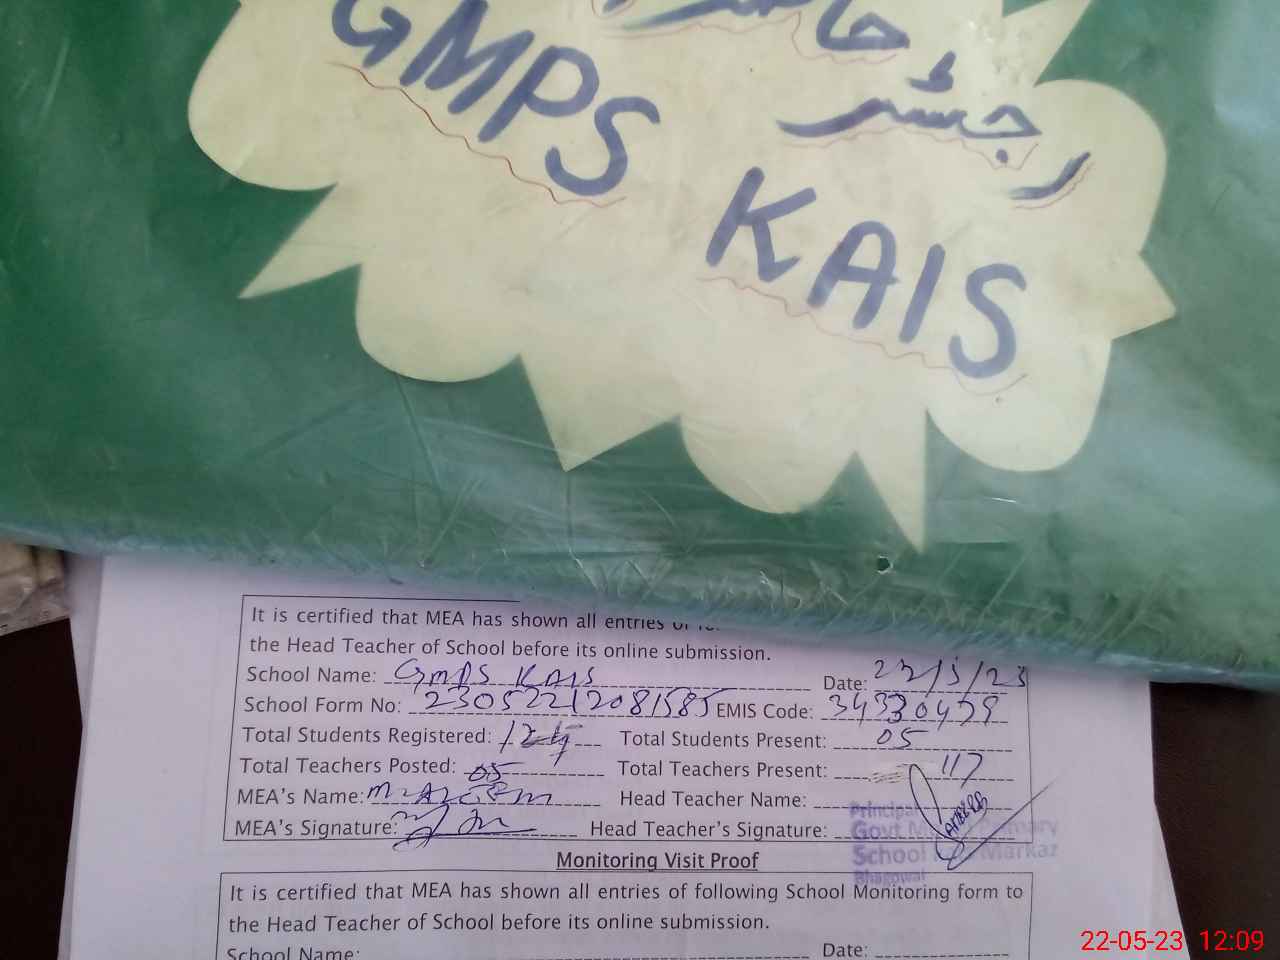 GMPS
حاضری
رجسٹر
KAIS
It is certified that MEA has shown all entries of
the Head Teacher of School before its online submission.
School Name: GMPS KAIS Date: 22/5/23
School Form No: 23052212081585 EMIS Code: 34330459
Total Students Registered: Total Students Present: 05
Total Teachers Posted: 05 Total Teachers Present: 117
MEA's Name: Head Teacher Name:
MEA's Signature: Head Teacher's Signature:
Principal
Govt Primary
School Markaz
Bhagowal
Monitoring Visit Proof
It is certified that MEA has shown all entries of following School Monitoring form to
the Head Teacher of School before its online submission.
School Name: Date:
22-05-23 12:09